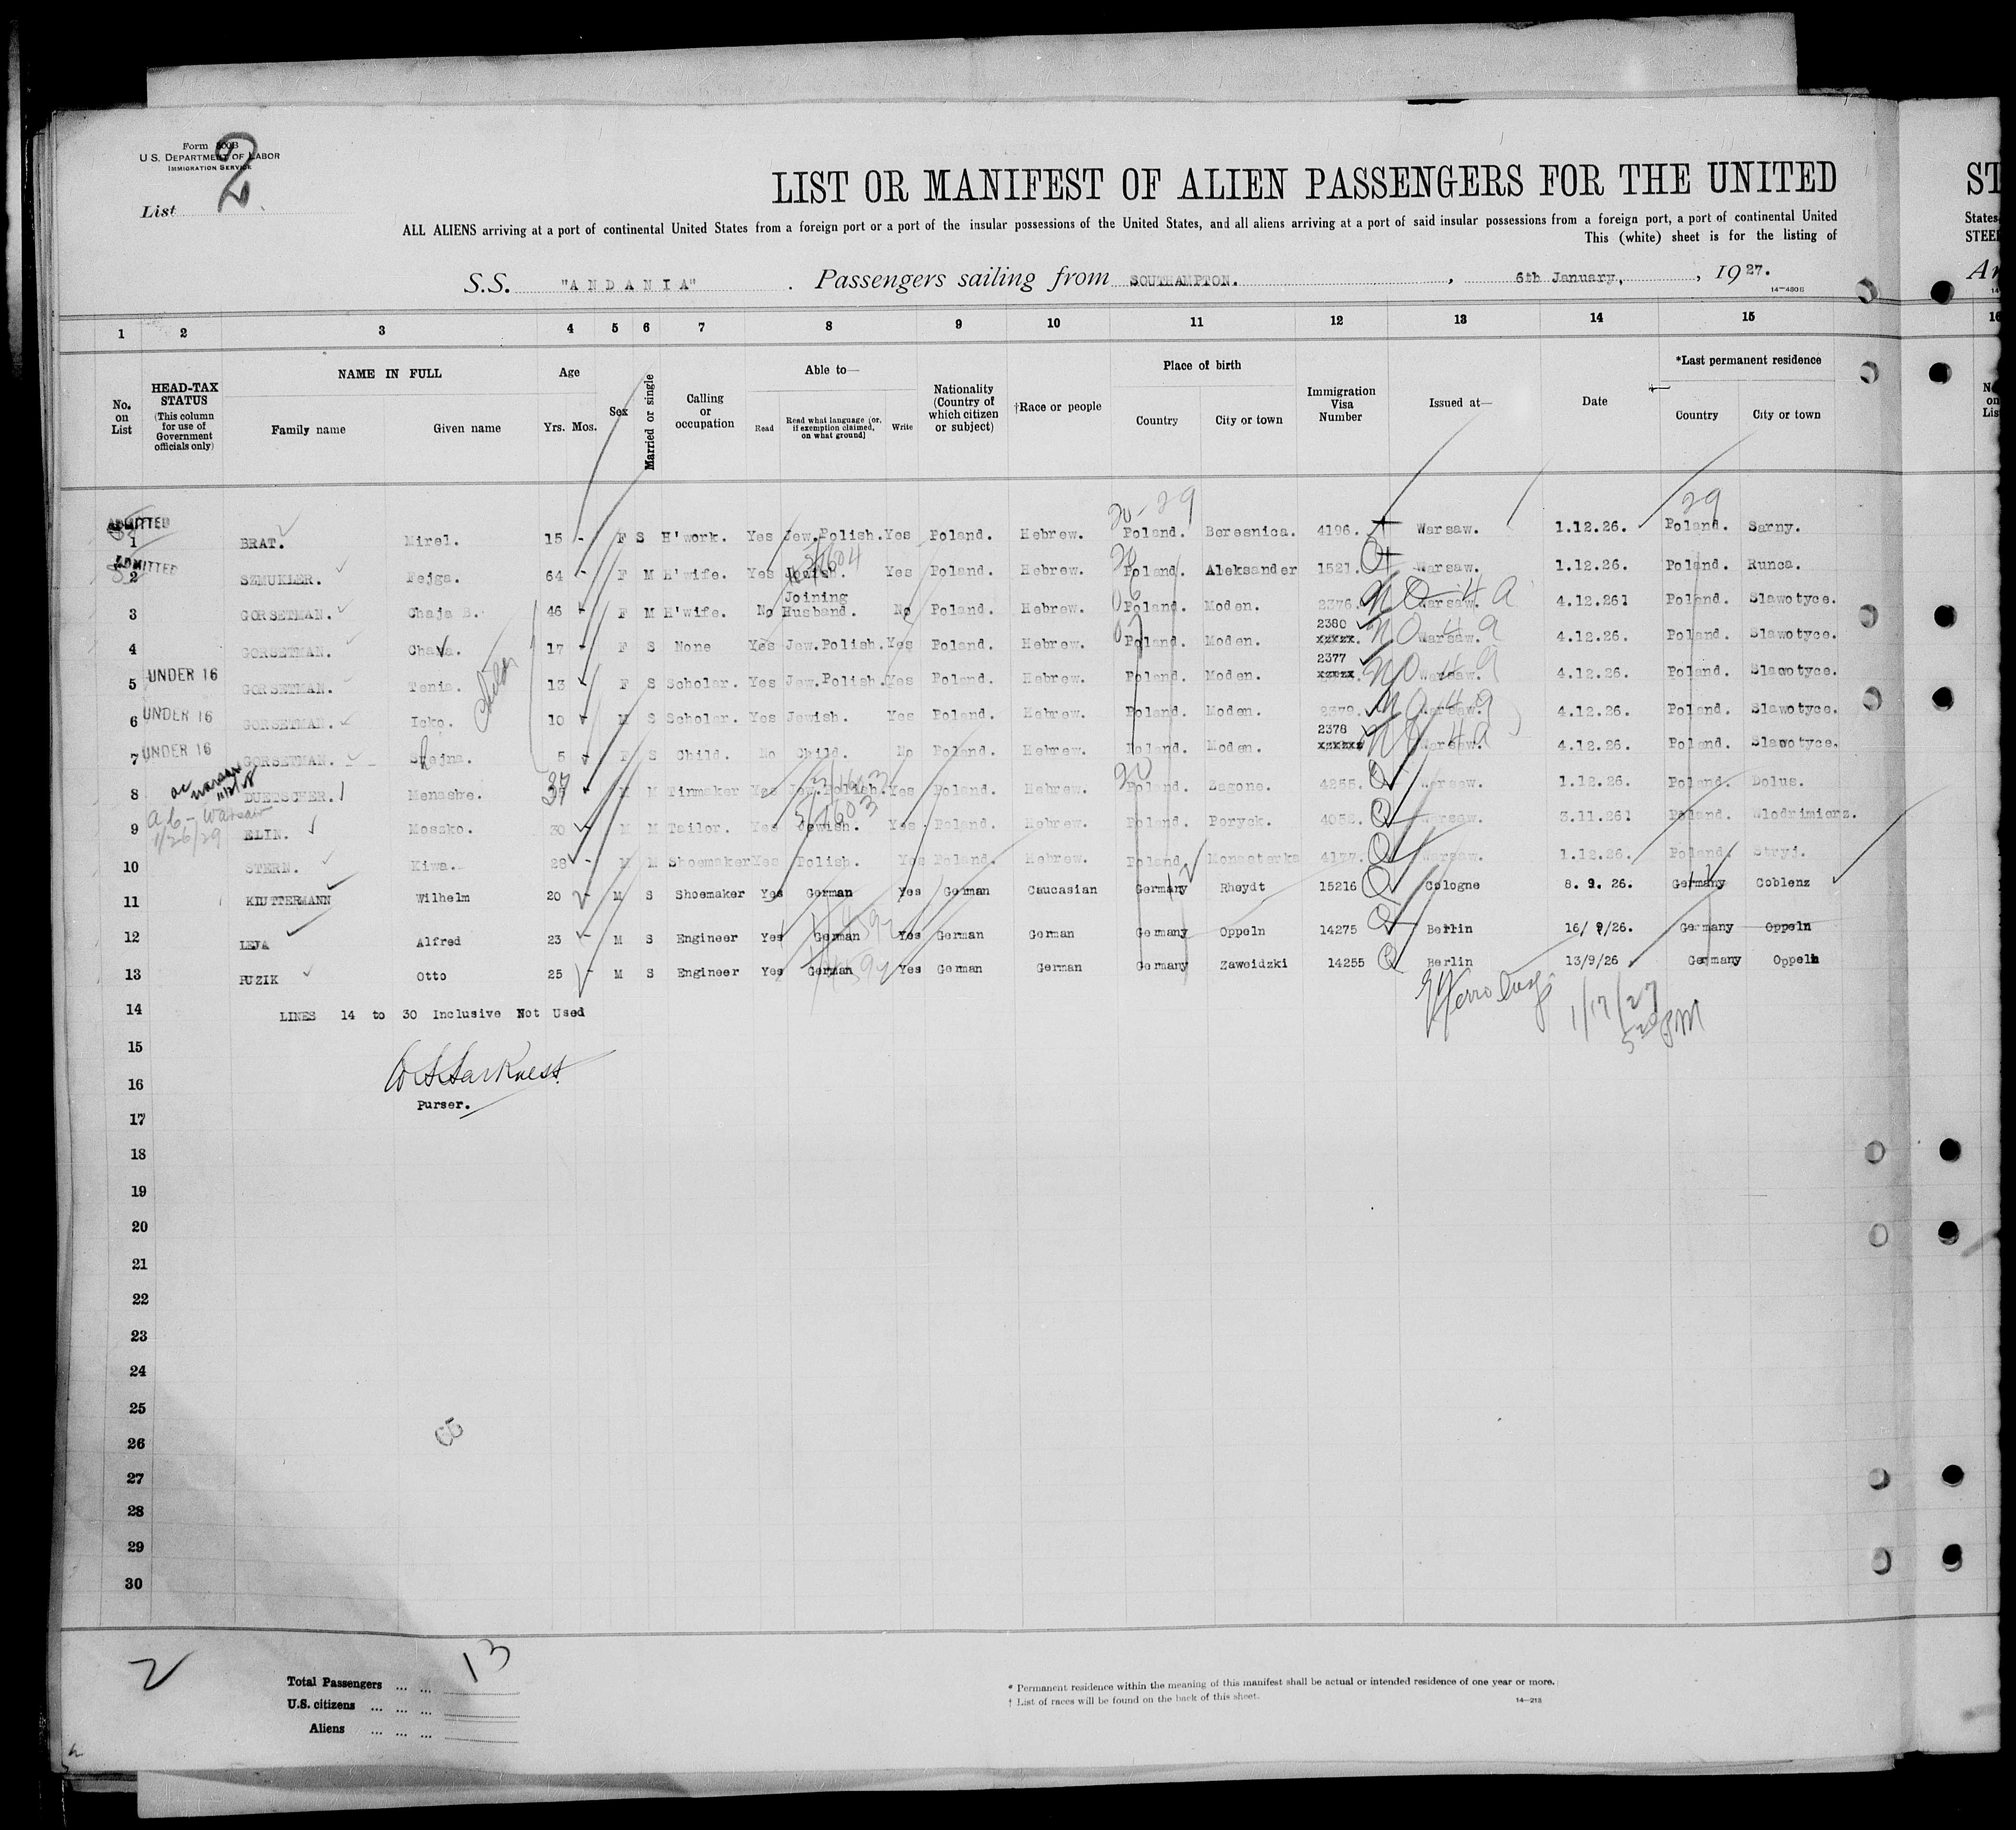 Form 500B
U.S. DEPARTMENT OF LABOR
IMMIGRATION SERVICE
List 2
LIST OR MANIFEST OF ALIEN PASSENGERS FOR THE UNITED
ST
ALL ALIENS arriving at a port of continental United States from a foreign port or a port of the insular possessions of the United States, and all aliens arriving at a port of said insular possessions from a foreign port, a port of continental United
States,
This (white) sheet is for the listing of
STEE
S.S. "ANDANIA" . Passengers sailing from SOUTHAMPTON. , 6th January, , 19 27.
14—480B
1 2 3 4 5 6 7 8 9 10 11 12 13 14 15 16
No. on List
HEAD-TAX STATUS (This column for use of Government officials only)
NAME IN FULL
Family name Given name
Age
Yrs. Mos.
Sex
Married or single
Calling or occupation
Able to—
Read Read what language [or, if exemption claimed, on what ground] Write
Nationality (Country of which citizen or subject)
†Race or people
Place of birth
Country City or town
Immigration Visa Number
Issued at—
Date
*Last permanent residence
Country City or town
20-29 29
ADMITTED
1 BRAT. Mirel. 15 - F S H'work. Yes Jew.Polish. Yes Poland. Hebrew. Poland. Beresnica. 4196. Warsaw. 1.12.26. Poland. Sarny.
ADMITTED
2 SZMUKLER. Fejga. 64 - F M H'wife. Yes Jewish. Yes Poland. Hebrew. Poland. Aleksander 1521. Warsaw. 1.12.26. Poland. Runca.
3 GORSETMAN. Chaja B. 46 - F M H'wife. No Joining Husband. No Poland. Hebrew. Poland. Moden. 2376. NO 4 a Warsaw. 4.12.261 Poland. Slawotyce.
4 GORSETMAN. Chava. 17 - F S None Yes Jew.Polish. Yes Poland. Hebrew. Poland. Moden. 2380 xxxxx. NO 4 a Warsaw. 4.12.26. Poland. Slawotyce.
5 UNDER 16 GORSETMAN. Tenia. 13 F S Scholar. Yes Jew.Polish. Yes Poland. Hebrew. Poland. Moden. 2377 xxxxx. NO 4 a Warsaw. 4.12.26. Poland. Slawotyce.
6 UNDER 16 GORSETMAN. Icko. 10 M S Scholar. Yes Jewish. Yes Poland. Hebrew. Poland. Moden. 2379. NO 4 a Warsaw. 4.12.26. Poland. Slawotyce.
7 UNDER 16 GORSETMAN. Shejna. 5 F S Child. No Child. No Poland. Hebrew. Poland. Moden. 2378 xxxxxx NO 4 a Warsaw. 4.12.26. Poland. Slawotyce.
8 DUETSCHER. Menashe. 37 M M Tinmaker Yes Jew.Polish. Yes Poland. Hebrew. Poland. Zagone. 4255. Warsaw. 1.12.26. Poland. Dolus.
a.c - Warsaw
1/26/29
9 ELIN. Moszko. 30 M M Tailor. Yes Jewish. Yes. Poland. Hebrew. Poland. Poryck. 4052. Warsaw. 3.11.261 Poland. Wlodzimierz.
10 STERN. Kiwa. 28 - M M Shoemaker Yes Polish. Yes Poland. Hebrew. Poland. Monasterka 4177. Warsaw. 1.12.26. Poland. Stryj.
11 KLUTTERMANN Wilhelm 20 - M S Shoemaker Yes German Yes German Caucasian Germany Rheydt 15216 Cologne 8. 9. 26. Germany Coblenz
12 LEJA Alfred 23 - M S Engineer Yes German Yes German German Germany Oppeln 14275 Berlin 16/ 9/26. Germany Oppeln
13 PUZIK Otto 25 - M S Engineer Yes German Yes German German Germany Zaweidzki 14255 Berlin 13/9/26 Germany Oppeln
14 LINES 14 to 30 Inclusive Not Used
1/17/27
5 20 PM
15
16
Purser.
17
18
19
20
21
22
23
24
25
26
27
28
29
30
2
Total Passengers ... ... 13
U.S. citizens ... ... ...
Aliens ... ... ...
* Permanent residence within the meaning of this manifest shall be actual or intended residence of one year or more.
† List of races will be found on the back of this sheet.
14—213